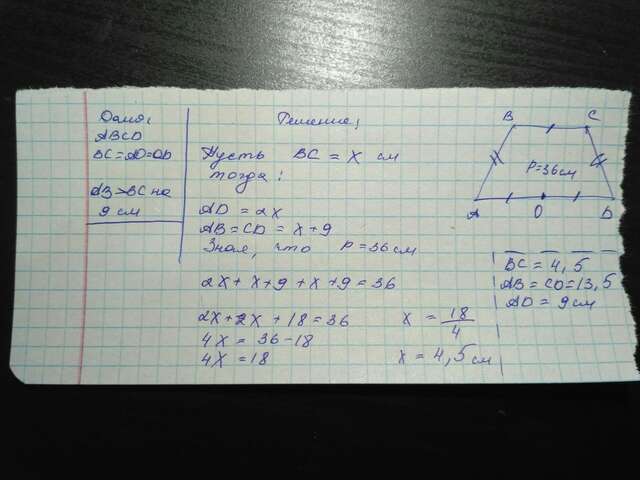 Дано:
ABCD
BC=AO=OD
AB>BC на
9 см
Решение:
Пусть BC = x см
тогда:
AD = 2x
AB = CD = x+9
Зная, что P=36см
2x+x+9+x+9=36
2x+2x+18=36
4x = 36-18
4x = 18
x = 18/4
x = 4,5см
B C
P=36см
A O D
BC = 4,5
AB = CD=13,5
AD = 9см